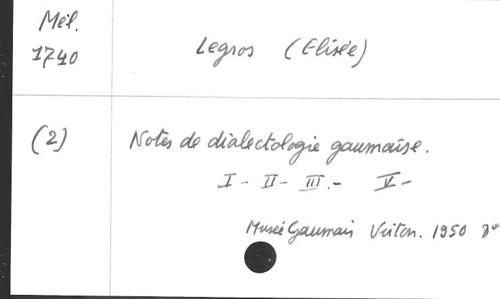 Mél.
1740
Legros (Elisée)
(2)
Notes de dialectologie gaumaise.
I - II - III. - V -
Musée Gaumais Virton. 1950 8°